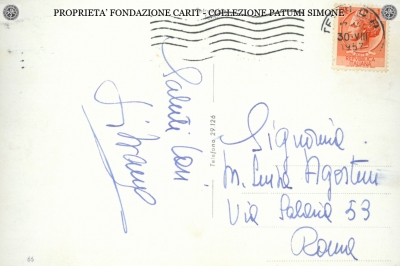 PROPRIETA' FONDAZIONE CARIT - COLLEZIONE PATUMI SIMONE
30·VIII
1957
Saluti cari
Telefono 29.126
Signorina
M. Luisa Agostini
Via Salaria 53
Roma